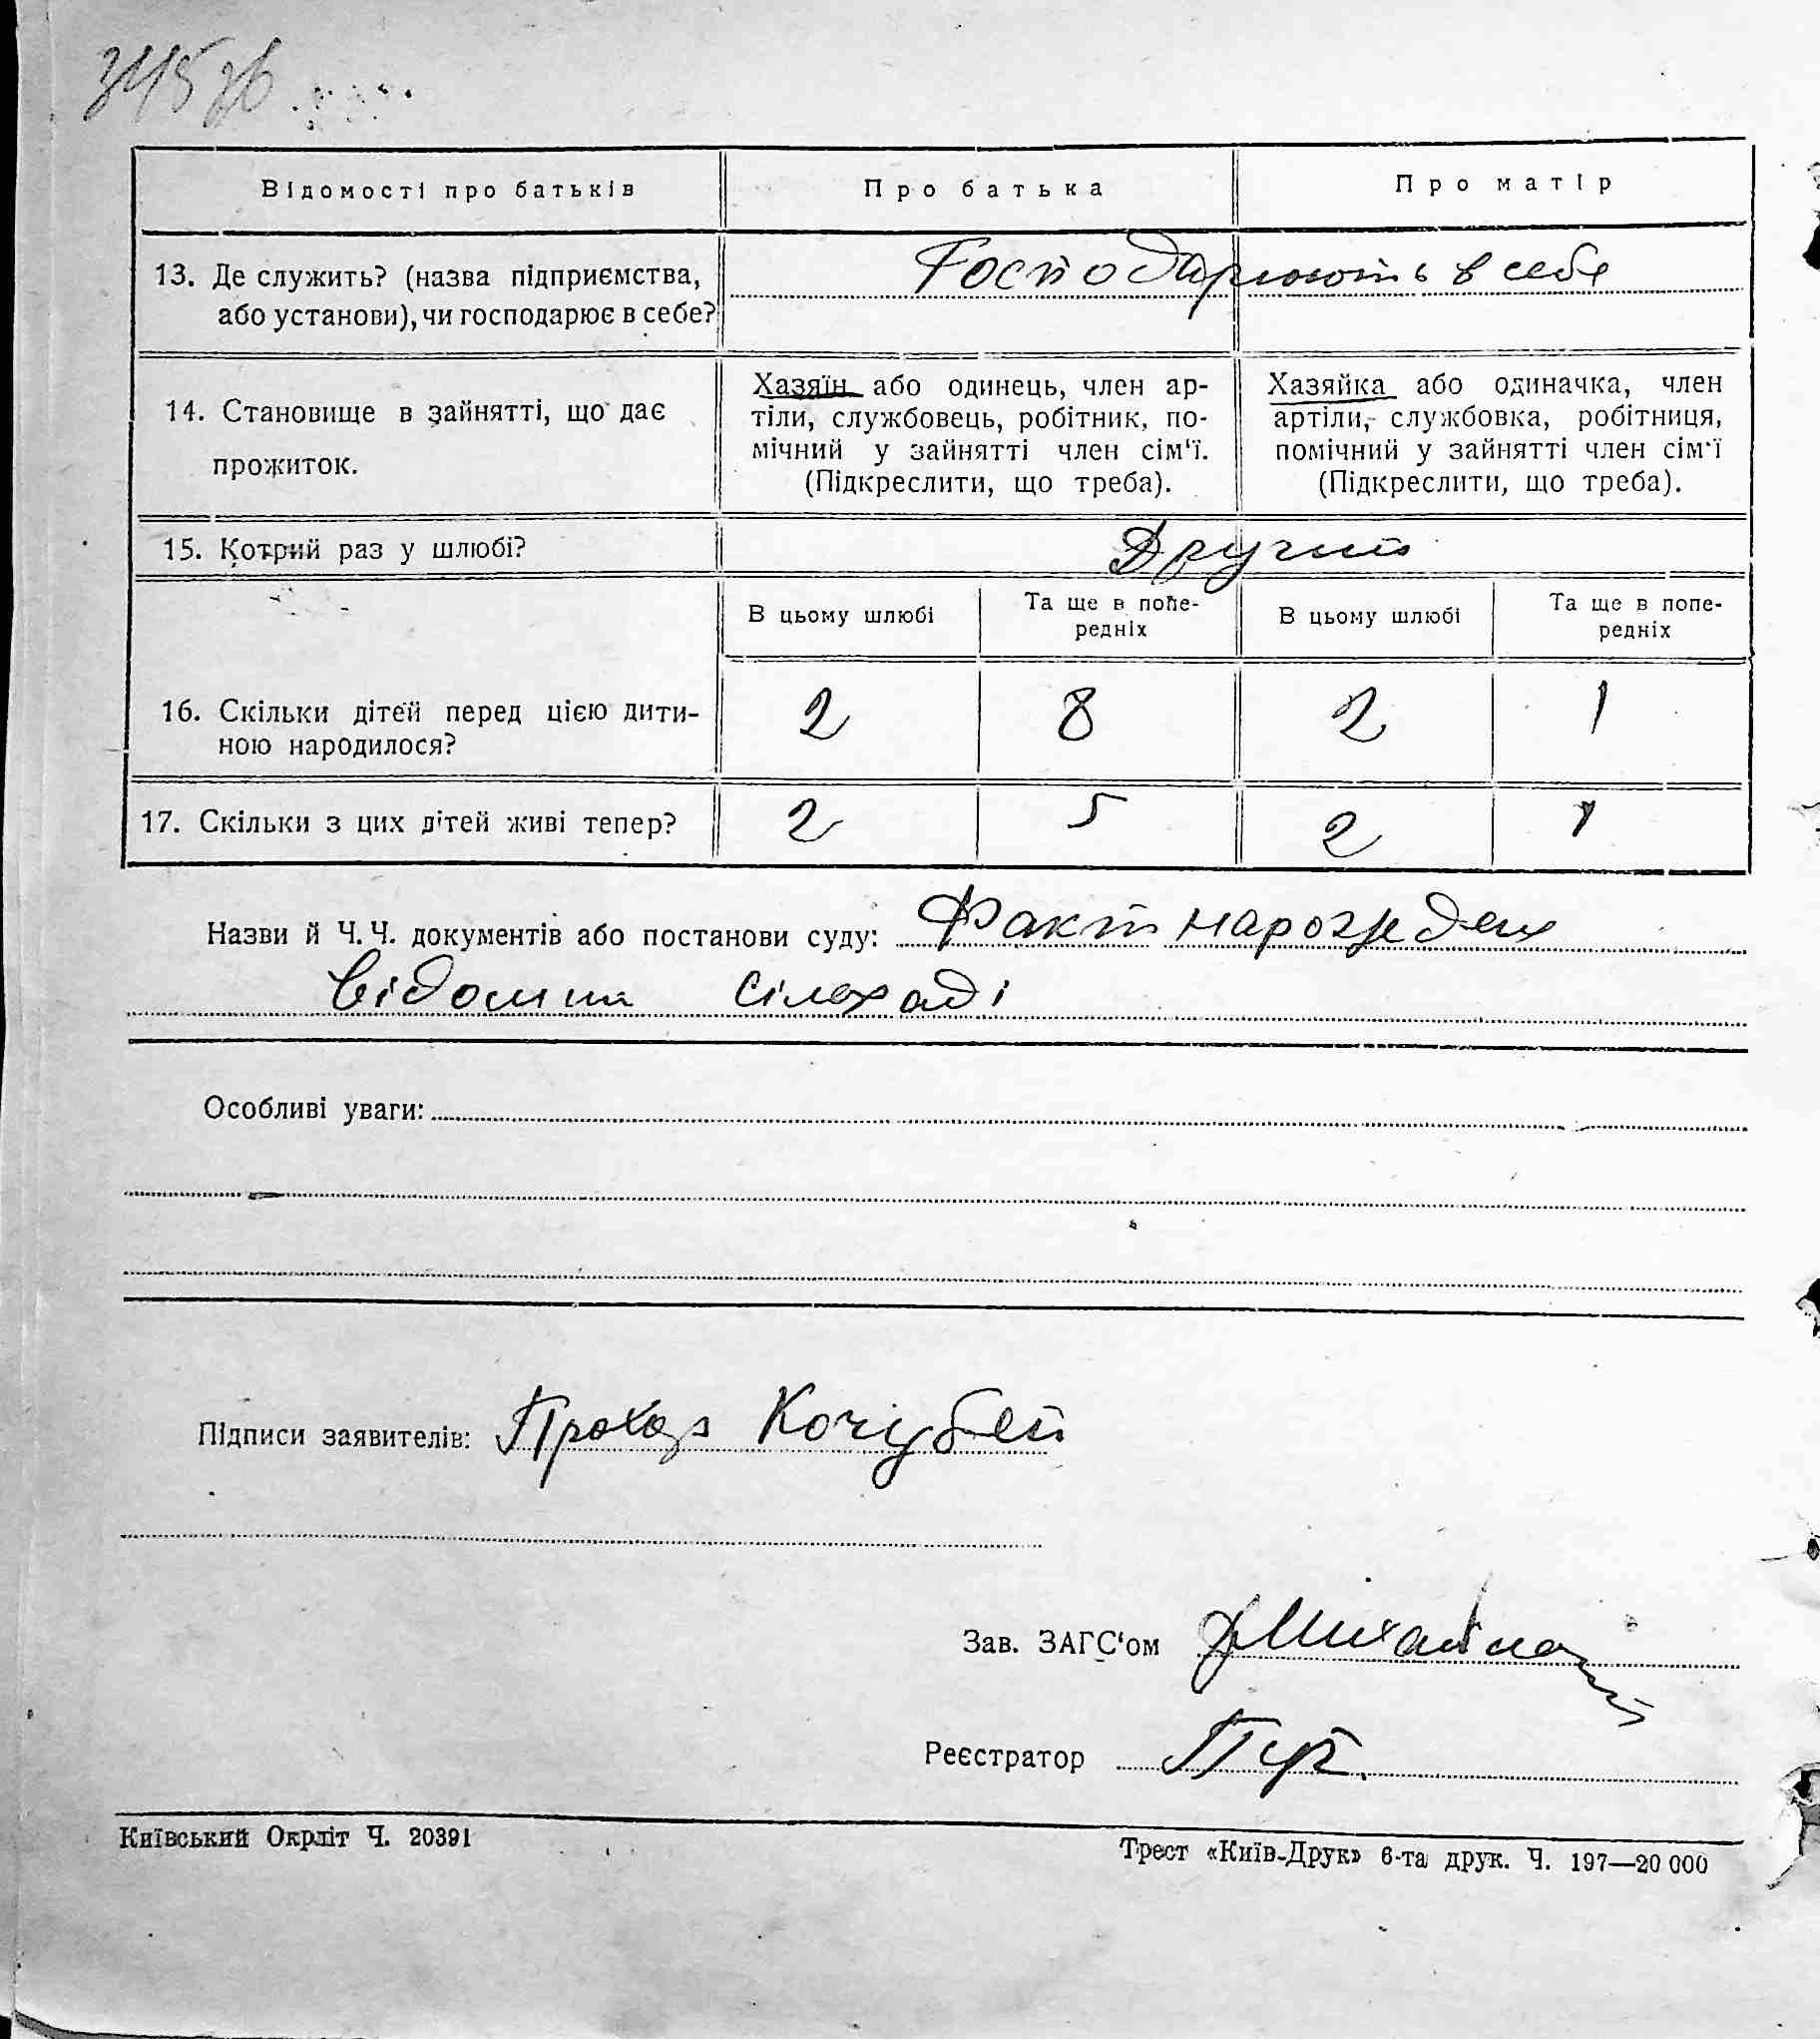 345 зв
Відомості про батьків
Про батька
Про матір
13. Де служить? (назва підприємства,
або установи), чи господарює в себе?
Господарюють в себе
14. Становище в зайнятті, що дає
прожиток.
Хазяїн або одинець, член ар-
тіли, службовець, робітник, по-
мічний у зайнятті член сім‘ї.
(Підкреслити, що треба).
Хазяйка або одиначка, член
артіли, службовка, робітниця,
помічний у зайнятті член сім‘ї
(Підкреслити, що треба).
15. Котрий раз у шлюбі?
Другий
В цьому шлюбі
Та ще в попе-
редніх
В цьому шлюбі
Та ще в попе-
редніх
16. Скільки дітей перед цією дити-
ною народилося?
2 8 2 1
17. Скільки з цих дітей живі тепер?
2 5 2 1
Назви й Ч.Ч. документів або постанови суду: Факт народження
відомий сільраді
Особливі уваги:
Підписи заявителів: Прохор Кочубей
Зав. ЗАГС‘ом
Реєстратор
Київський Окрліт Ч. 20391
Трест «Київ-Друк» 6-та друк. Ч. 197—20 000